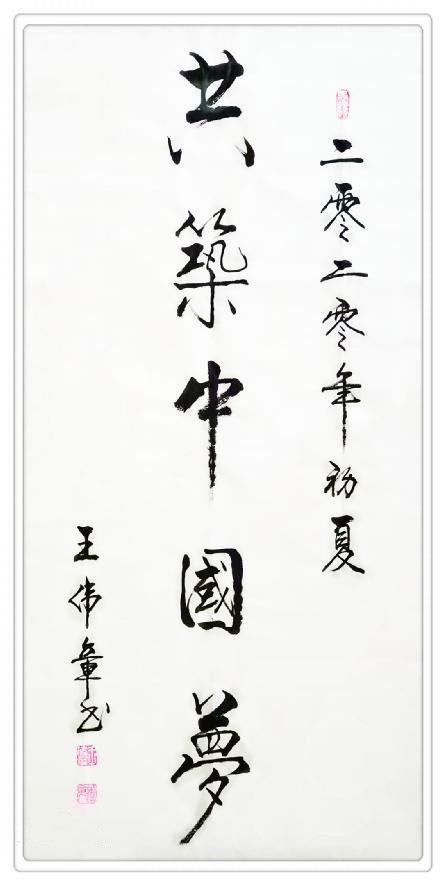 二零二零年初夏
共築中國夢
王伟章书